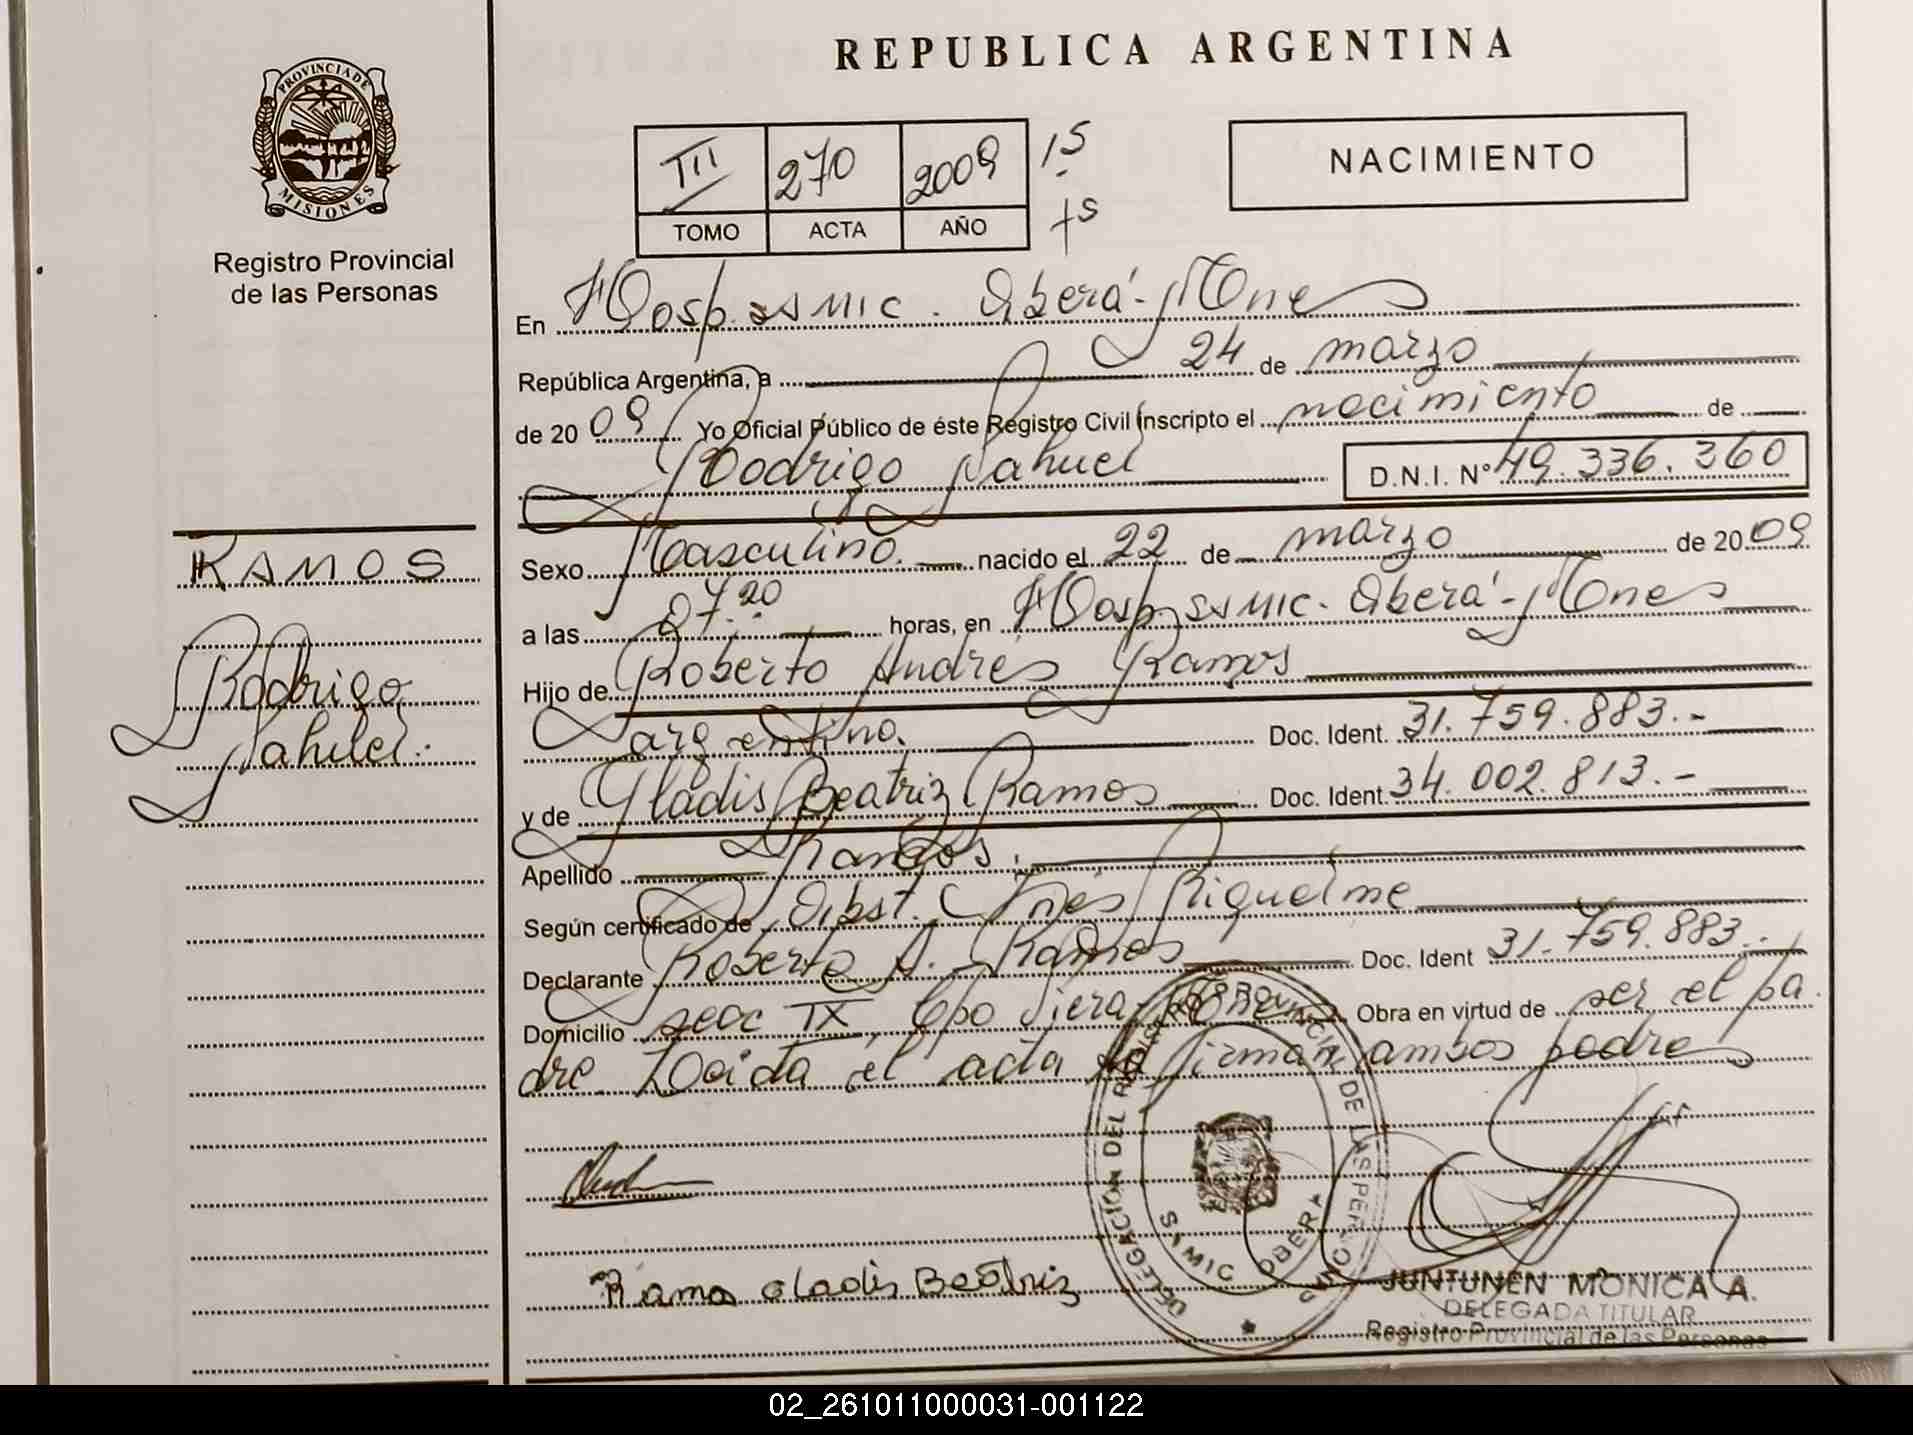 REPUBLICA ARGENTINA
PROVINCIA DE MISIONES
Registro Provincial
de las Personas
III 270 2009 15
TOMO ACTA AÑO
NACIMIENTO
En Hosp. SAMIC. Oberá-Mnes
República Argentina, a 24 de marzo
de 2009 Yo Oficial Público de éste Registro Civil inscripto el nacimiento de
Rodrigo Nahuel D.N.I. Nº 49.336.360
RAMOS
Rodrigo
Nahuel.-
Sexo Masculino. nacido el 22 de marzo de 2009
a las 07.20 horas, en Hosp. SAMIC. Oberá-Mnes
Hijo de Roberto Andrés Ramos
argentino. Doc. Ident. 31.759.883.-
y de Gladis Beatriz Ramos Doc. Ident. 34.002.813.-
Apellido Ramos.
Según certificado de Obst. Inés Riquelme
Declarante Roberto A. Ramos Doc. Ident 31.759.883.-
Domicilio secc IX, Cpo Viera Obra en virtud de ser el pa
dre. Leida el acta firman ambos padres
DELEGACION DEL REGISTRO PROVINCIAL DE LAS PERSONAS
SAMIC OBERA
Ramos Gladis Beatriz
JUNTUNEN MONICA A.
DELEGADA TITULAR
Registro Provincial de las Personas
02_261011000031-001122